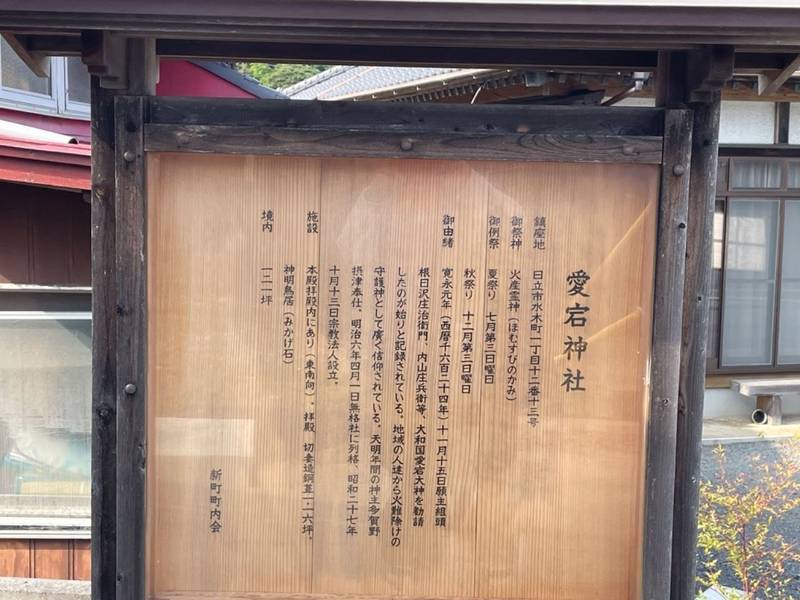 愛宕神社
鎮座地 日立市水木町一丁目十二番十三号
御祭神 火産霊神（ほむすびのかみ）
御例祭 夏祭り 七月第三日曜日
秋祭り 十二月第三日曜日
御由緒 寛永元年（西暦千六百二十四年）十一月十五日願主組頭
根日沢庄治衛門、内山庄兵衛等、大和国愛宕大神を勧請
したのが始りと記録されている。地域の人達から火難除けの
守護神として廣く信仰されている。天明年間の神主多賀野
摂津奉仕。明治六年四月一日無格社に列格、昭和二十七年
十月十三日宗教法人設立。
施設 本殿拝殿内にあり（東南向）。拝殿 切妻造銅葺一一・六坪。
神明鳥居（みかげ石）
境内 一二一坪
新町町内会